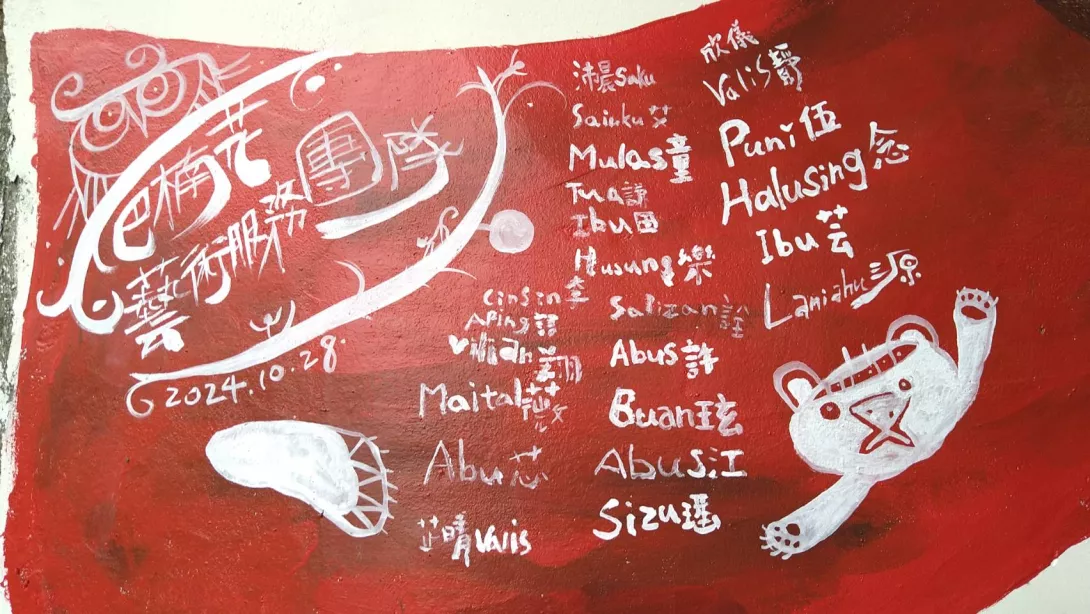 巴楠花
藝術服務團隊
2024.10.28.
沛晨Saku
Saiuku艾
Mulas童
Tua謙
Ibu田
Husung樂
cinsin奎
Aping語
Vilian翔
Maital
Abu芯
芷晴Valis
Salizan詮
Abus許
Buan玹
Abus江
Sizu瑶
欣儀
Valis靜
Puni伍
Halusing念
Ibu芸
Laniahu源